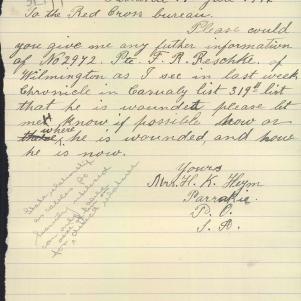 To the Red Cross bureau.
Please could
you give me any futher information
of No 2972. Pte. F. R. Reschke. of
Wilmington as I see in last week
Chronicle in Casualy list 319th list
that he is wounded please let
me know if possible how or
where he is wounded, and how
he is now.
Yours
Mrs. H. K. Heym
Parrakie
P. O.
S. A.